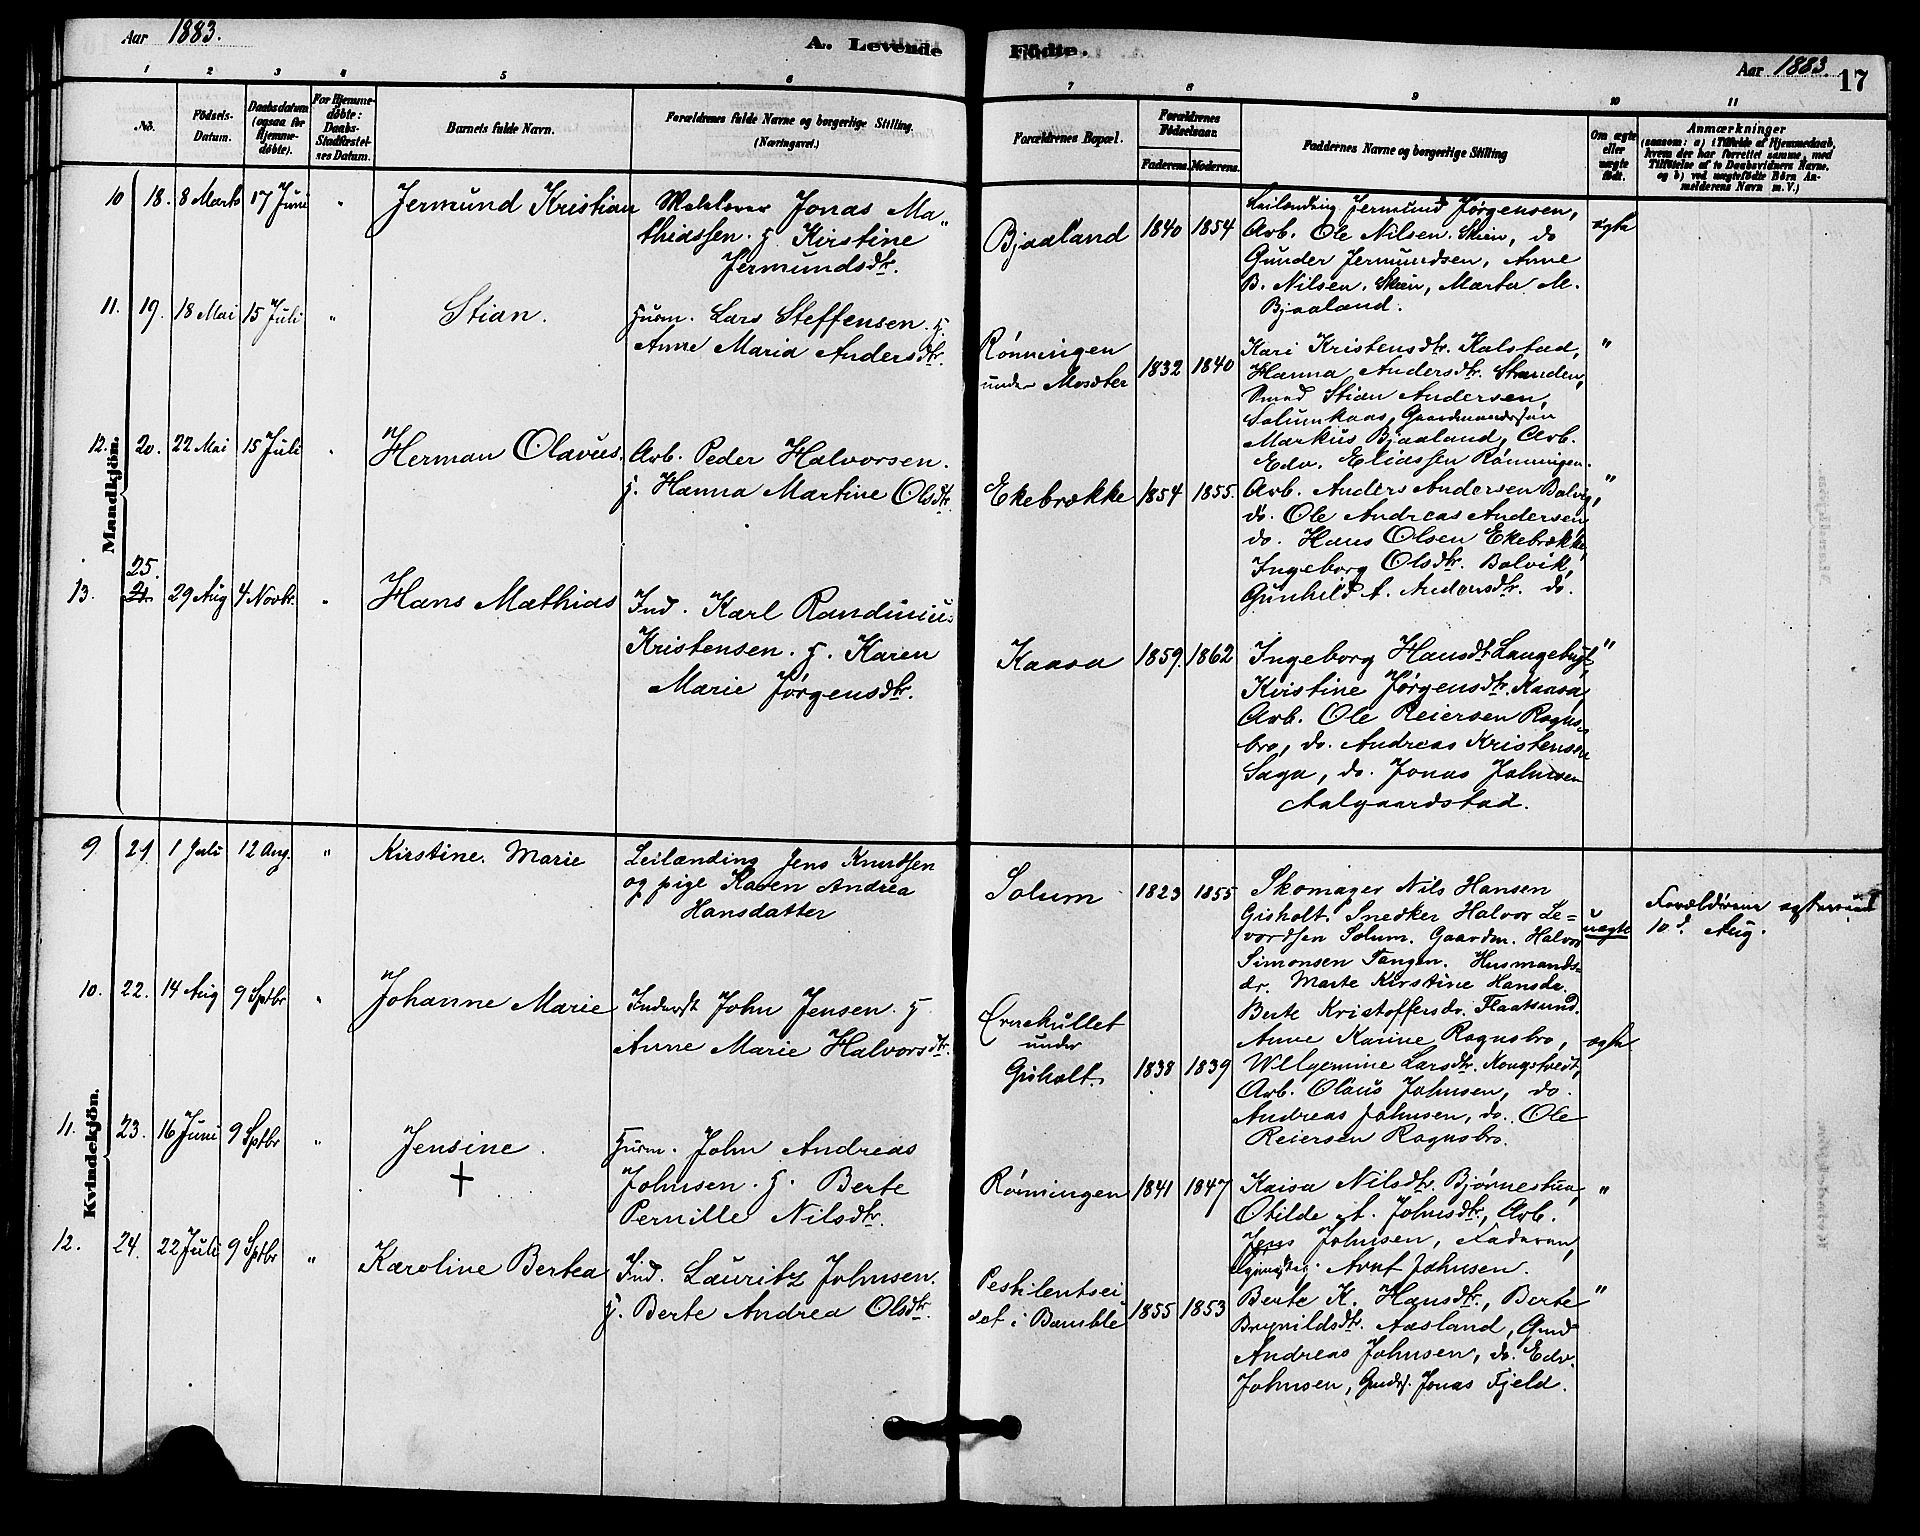 Aar 1883.
A. Levende Fødte.
Aar 1883.
17
1 2 3 4 5 6 7 8 9 10 11
No.
Fødsels-
Datum.
Daabsdatum
(ogsaa for
Hjemme-
døbte).
For Hjemme-
døbte:
Daabs-
Stadfæstel-
ses Datum.
Barnets fulde Navn.
Forældrenes fulde Navne og borgerlige Stilling.
(Næringsvei.)
Forældrenes Bopæl.
Forældrenes
Fødselsaar.
Faderens. Moderens.
Faddernes Navne og borgerlige Stilling
Om ægte
eller
uægte
født.
Anmærkninger
(saasom: a) i Tilfælde af Hjemmedaab,
hvem der har forrettet samme, med
Tilføielse af to Daabsvidners Navne,
og b) ved uægtefødte Børn An-
melderens Navn m. V.)
Mandkjøn.
10 18. 8 Marts 17 Juni "
Jermund Kristian
Jonas Ma-
thiassen. g. Kirstine
Jermundsdtr.
Bjaaland 1840 1854
Leilænding Jermund Jørgensen,
Arb. Ole Nilsen. Skien, do
Gunder Jermundsen, Anne
B. Nilsen. Skien, Marta M.
Bjaaland.
ægte
11. 19. 18 Mai 15 Juli "
Stian.
Husm. Lars Steffensen. g.
Anne Maria Andersdtr.
Rønningen
under Mosdter
1832 1840
Kari Kristensdtr. Kalstad,
Hanna Andersdtr. Stranden,
Smed Stian Andersen,
Solumkaas, Gaardmandssøn
Markus Bjaaland, Arb.
Edv. Eliassen Rønningen.
"
12. 20. 22 Mai 15 Juli "
Herman Olavus.
Arb. Peder Halvorsen.
g. Hanna Martine Olsdtr.
Ekebrække 1854 1855.
Arb. Anders Andersen Bolvig,
do. Ole Andreas Andersen
do. Hans Olsen Ekebrække,
Ingeborg Olsdtr. Bolvik,
Gunhild A. Andersdtr. do.
"
25.
13. 21. 29 Aug 4 Novbr. "
Hans Mathias
Ind. Karl Randinius
Kristensen. g. Karen
Marie Jørgensdtr.
Kaasa 1859. 1862
Ingeborg Hansdtr Langebugt,
Kristine Jørgensdtr. Kaasa,
Arb. Ole Reiersen Rogns-
bro, do. Andreas Kristensen
Saga, do. Jonas Johnsen
Aalgaardstad.
"
Kvindekjøn.
9 21. 1 Juli 12 Aug. "
Kirstine Marie
Leilænding Jens Knudsen
og pige Karen Andrea
Hansdatter
Solum 1823 1855
Skomager Nils Hansen
Gisholt. Snedker Halvor Le-
vordsen Solum. Gaardm. Halvor
Simonsen Tangen. Husmands-
dr. Marte Kirstine Hansdr.
Berte Kristoffersdr. Flaatsund.
uægte
Forældrene ægteviet
10d. Aug.
10. 22. 14 Aug 9 Sptbr "
Johanne Marie
Inderst John Jensen. g
Anne Marie Halvorsdtr.
Ørnekullet
under
Gisholt.
1838 1839
Anne Karine Rognsbro,
Willgermine Larsdtr. Kongstveit,
Arb. Olaus Johnsen, do.
Andreas Johnsen, do. Ole
Reiersen Rognsbro.
ægte
11. 23. 16 Juni 9 Sptbr "
Jensine.
+
Husm. John Andreas
Johnsen. g. Berte
Pernille Nilsdtr.
Rønningen 1841 1847
Kaisa Nilsdtr. Bjørnestua,
Otilde A. Johnsdtr., Arb.
Jens Johnsen, Faderen,
Arnt Johnsen.
"
12. 24. 22 Juli 9 Sptbr "
Karoline Bertea
Ind. Lauritz Johnsen.
g. Berte Andrea Olsdtr.
Pestilentsei
det i Bamble
1855 1853
Berte K. Hansdtr., Berte
Brynildsdtr. Aasland, Gmd
Andreas Johnsen, do. Edv.
Johnsen, Gmds. Jonas Fjeld.
"